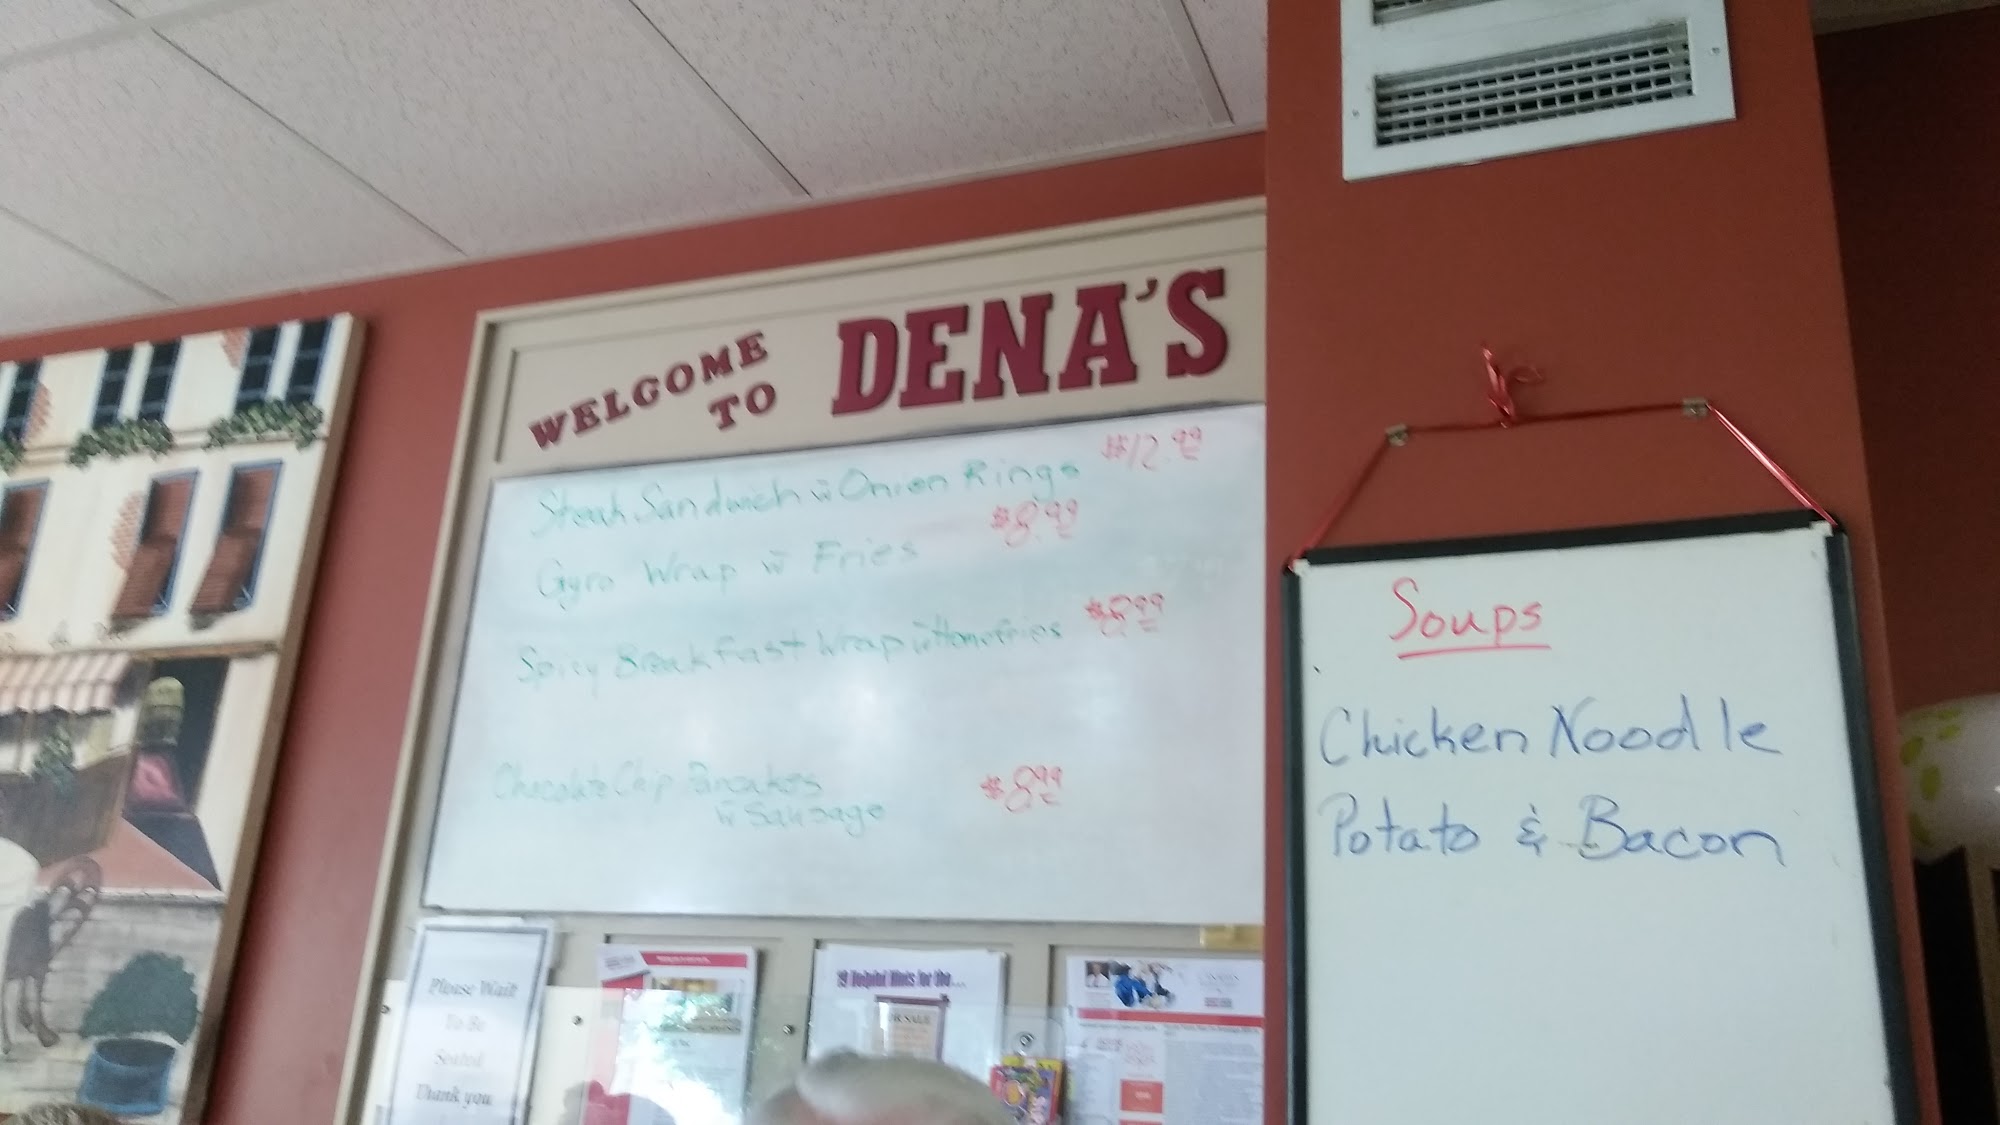 WELCOME
TO DENA'S
Steak Sandwich w̄ Onion Rings $12.99
Gyro Wrap w̄ Fries $8.99
Spicy Breakfast Wrap w̄ Homefries $8.99
Chocolate Chip Pancakes $8.99
w̄ Sausage
Soups
Chicken Noodle
Potato & Bacon
Please Wait
To Be
Seated
Thank you
19 Helpful Hints for the...